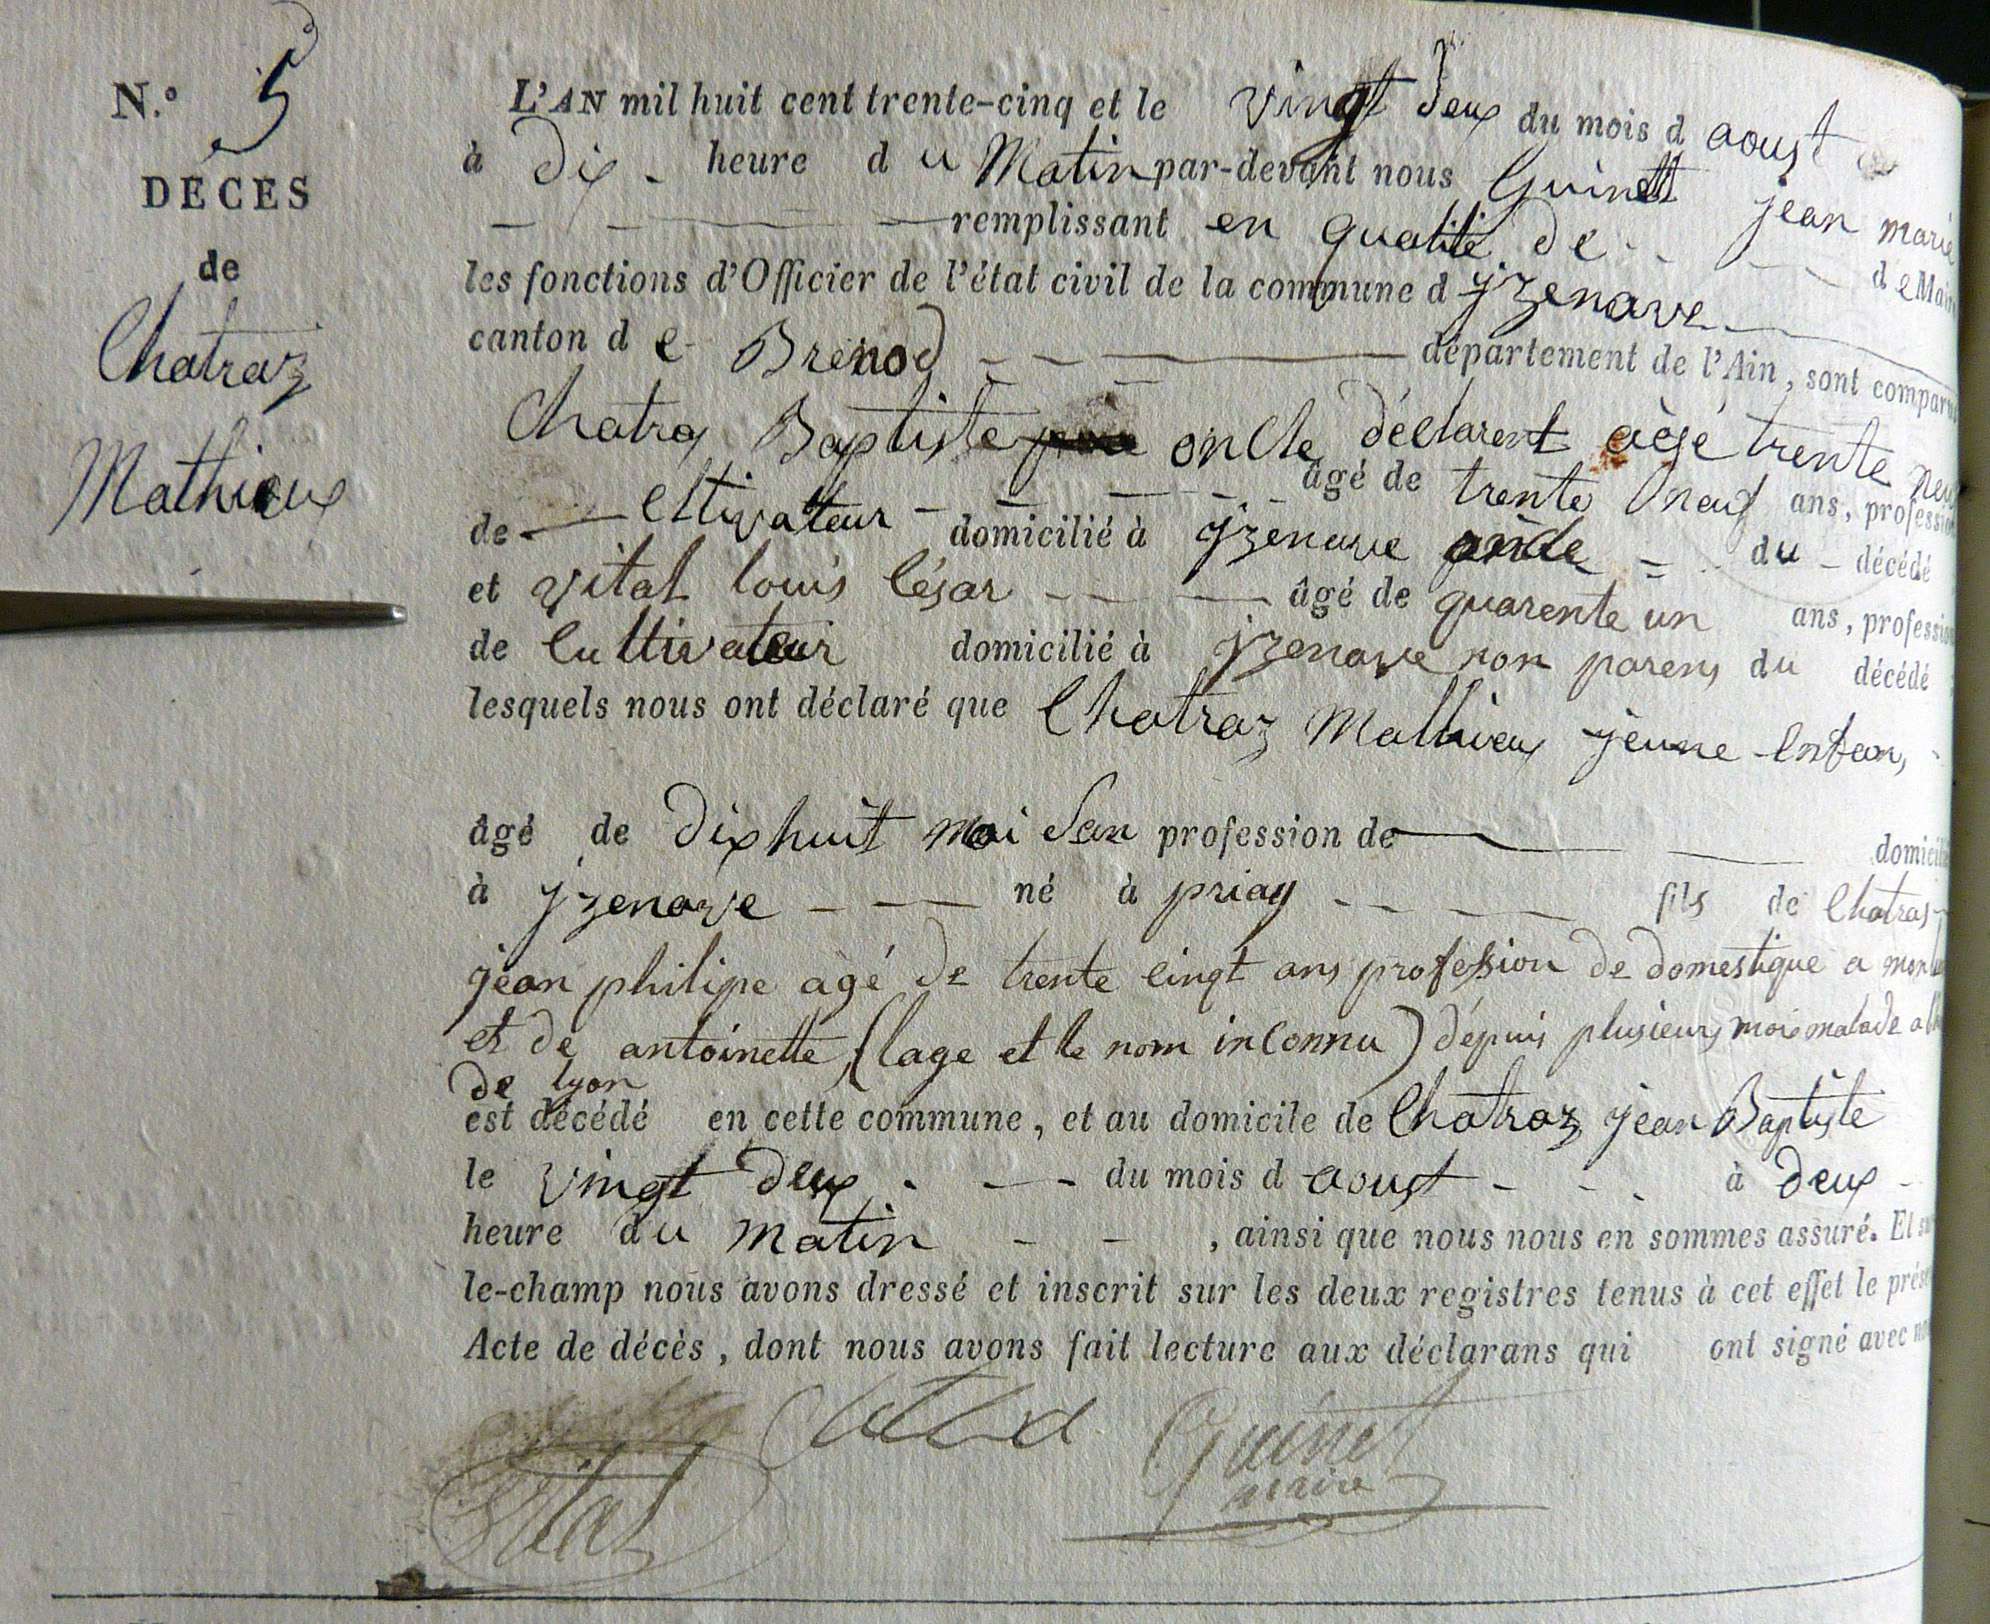 N.º 5
DÉCÈS
de
Chatraz
Mathieux
L'AN mil huit cent trente-cinq et le vingt deux du mois d aoust
à dix - heure d u Matin par-devant nous Guinett jean marie
remplissant en qualité de - - - d e Maire
les fonctions d'Officier de l'état civil de la commune d yzenave
canton d e Brenod - - - département de l'Ain, sont comparus
Chatraz Baptiste oncle déclarent aègé trente neuf
âgé de trente neuf ans, profession
de cltivateur - domicilié à yzenave oncle = du - décédé
et vital louis César - - - âgé de quarente un ans, profession
de Cultivateur domicilié à yzenave non parens du décédé
lesquels nous ont déclaré que Chatraz Mathieux jeune Enfan,
âgé de dix huit moi San profession de domicilié
à yzenave - - - né à priay - - - fils de Chatras
jean philipe agé de trente cinqt ans profession de domestique a
et de antoinette, (lage et le nom inconnu) dépuis plusieurs mois malade a
de lyon
est décédé en cette commune, et au domicile de Chatraz jean Baptiste
le vingt deux - - - du mois d aoust - - - à deux -
heure du matin - - , ainsi que nous nous en sommes assuré. Et sur
le-champ nous avons dressé et inscrit sur les deux registres tenus à cet effet le présent
Acte de décès, dont nous avons fait lecture aux déclarans qui ont signé avec nous
Guinet
Vital
maire